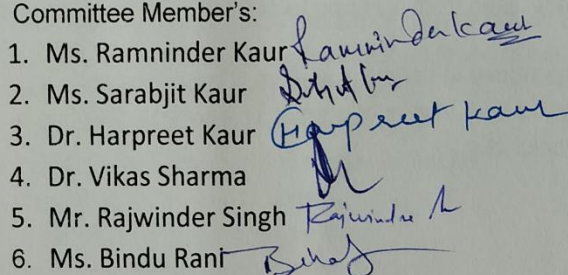 Committee Member's:
1. Ms. Ramninder Kaur Ramninderkaur
2. Ms. Sarabjit Kaur
3. Dr. Harpreet Kaur Harpreet Kaur
4. Dr. Vikas Sharma
5. Mr. Rajwinder Singh Rajwinder
6. Ms. Bindu Rani